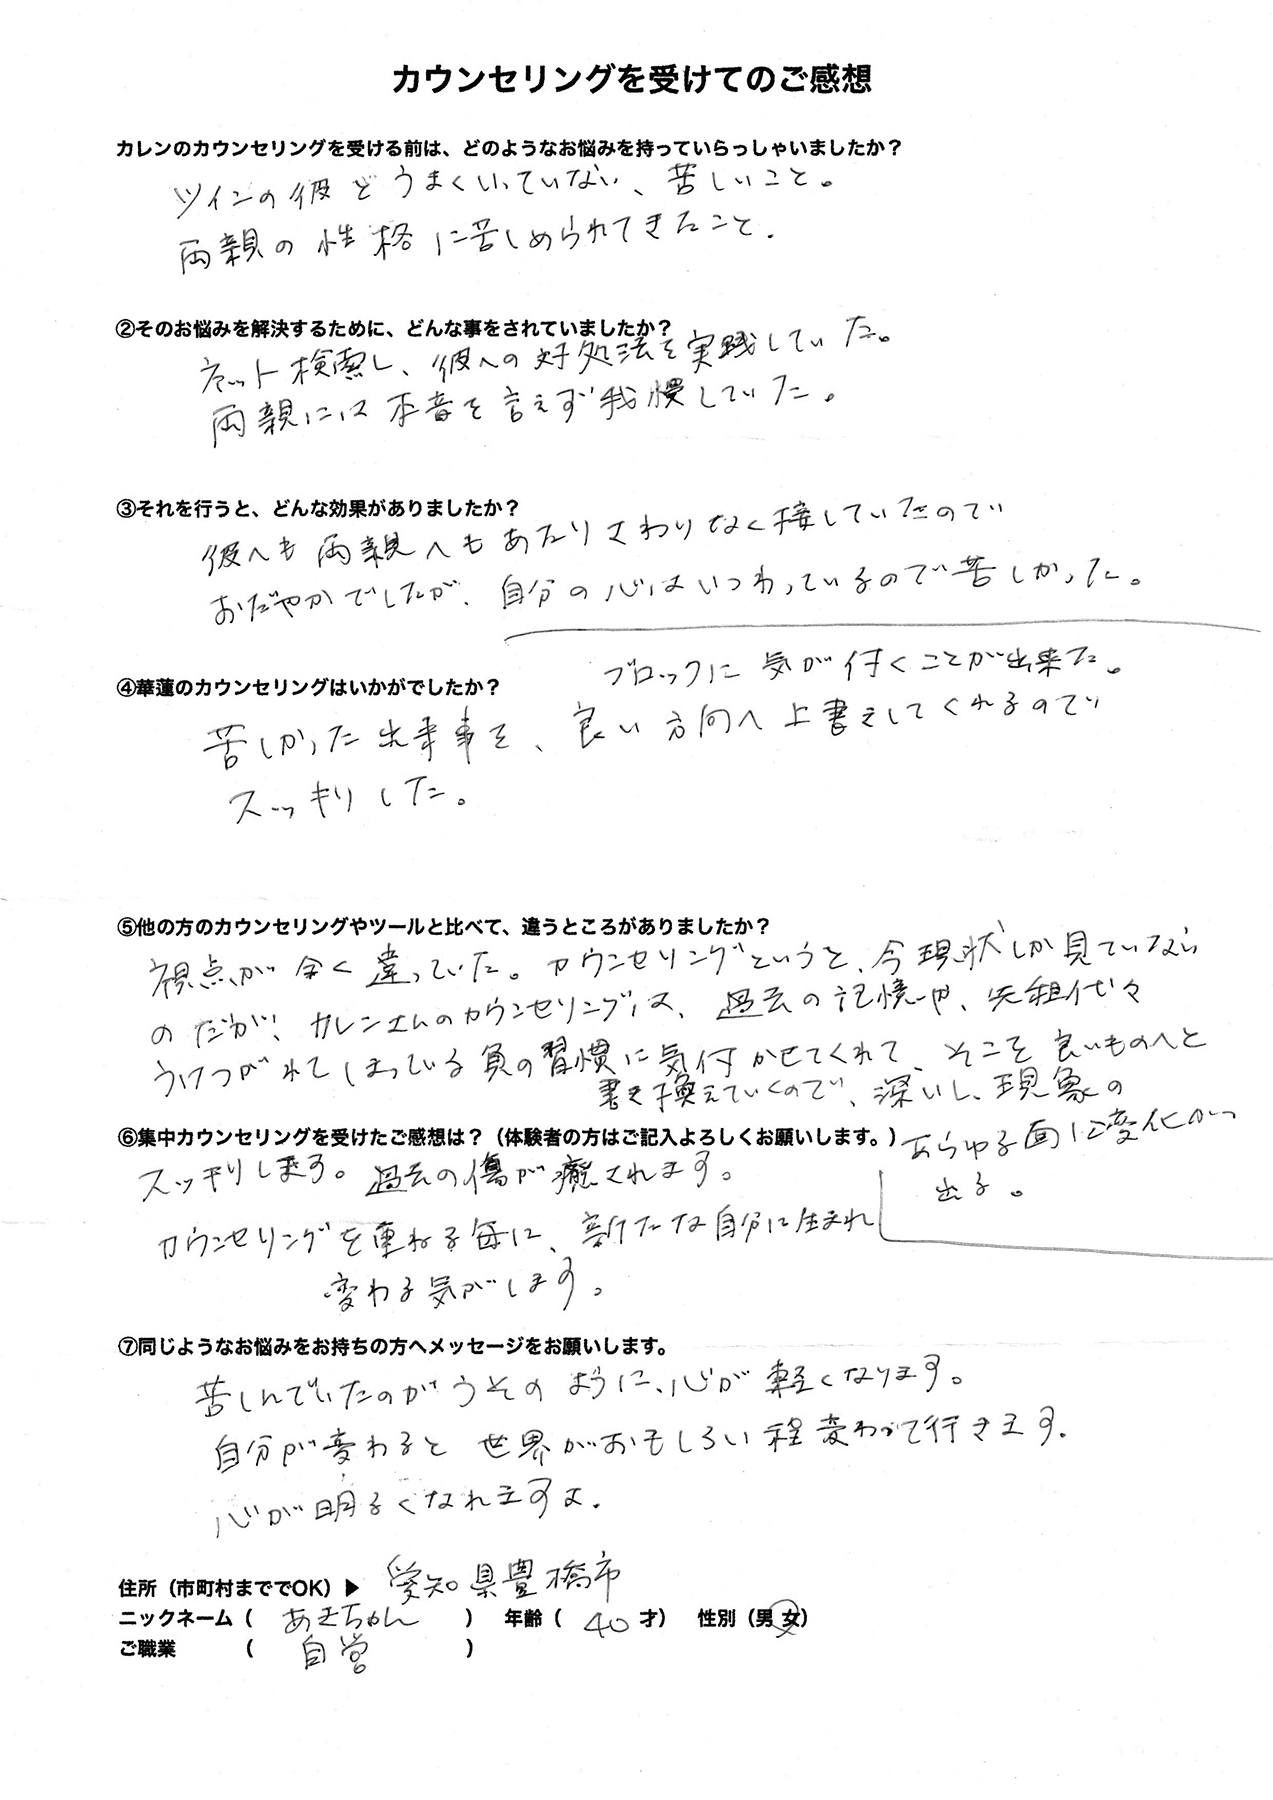 カウンセリングを受けてのご感想
カレンのカウンセリングを受ける前は、どのようなお悩みを持っていらっしゃいましたか？
ツインの彼とうまくいっていない、苦しいこと。
両親の性格に苦しめられてきたこと.
②そのお悩みを解決するために、どんな事をされていましたか？
ネット検索し、彼への対処法を実践していた。
両親には本音を言えず我慢していた。
③それを行うと、どんな効果がありましたか？
彼へも両親へもあたりさわりなく接していたので
おだやかでしたが、自分の心はいつわっているので苦しかった。
④華蓮のカウンセリングはいかがでしたか？
ブロックに気が付くことが出来た。
苦しかった出来事を、良い方向へ上書きしてくれるので
スッキリした。
⑤他の方のカウンセリングやツールと比べて、違うところがありましたか？
視点が全く違っていた。カウンセリングというと、今現状しか見ていない
のだが、カレンさんのカウンセリングは、過去の記憶や、先祖代々
うけつがれてしまっている負の習慣に気付かせてくれて、そこを良いものへと
書き換えていくので、深いし、現象の
あらゆる面に変化が
出る。
⑥集中カウンセリングを受けたご感想は？（体験者の方はご記入よろしくお願いします。）
スッキリします。過去の傷が癒されます。
カウンセリングを重ねる毎に、新たな自分に生まれ
変わる気がします。
⑦同じようなお悩みをお持ちの方へメッセージをお願いします。
苦しんでいたのがうそのように、心が軽くなります。
自分が変わると世界がおもしろい程変わって行きます.
心が明るくなれますよ.
住所（市町村まででOK）▶ 愛知県豊橋市
ニックネーム（ あきちゃん ） 年齢（ 40 才） 性別（男 女）
ご職業 （ 自営 ）